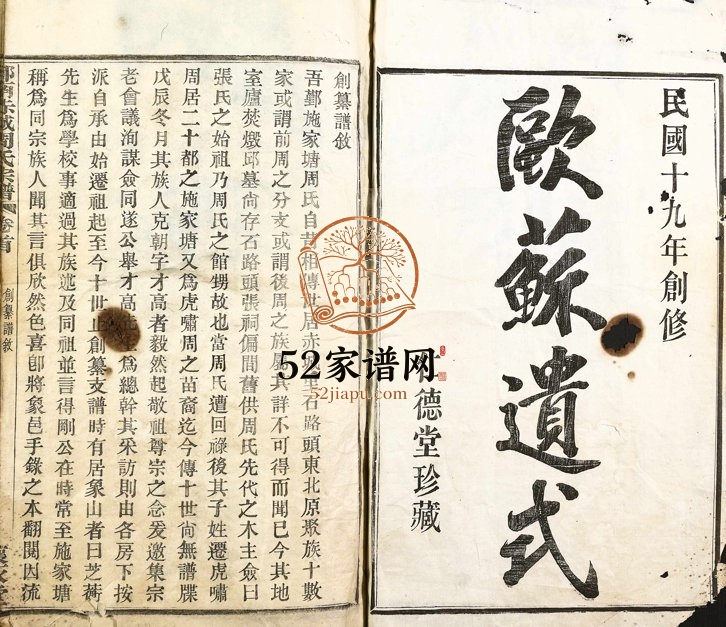 民國十九年創修
歐蘇遺式
德堂珍藏
創纂譜敘
吾鄞施家塘周氏自昔相傳世居赤里石路頭東北原聚族十數
家或謂前周之分支或謂後周之族屬其詳不可得而聞已今其地
室廬焚燬邱墓尙存石路頭張祠偏間舊供周氏先代之木主僉曰
張氏之始祖乃周氏之館甥故也當周氏遭回祿後其子姓遷虎嘯
周居二十都之施家塘又爲虎嘯周之苗裔迄今傳十世尙無譜牒
戊辰冬月其族人克朝字才高者毅然起敬祖尊宗之念爰邀集宗
老會議洵謀僉同遂公舉才高先生爲總幹其采訪則由各房下按
派自承由始遷祖起至今十世止創纂支譜時有居象山者曰芝蒔
先生爲學校事適過其族述及同祖並言得剛公在時常至施家塘
稱爲同宗族人聞其言俱欣然色喜卽將象邑手錄之本翻閱因流
周氏宗譜
卷首
創纂譜敘
52家谱网
52jiapu.com